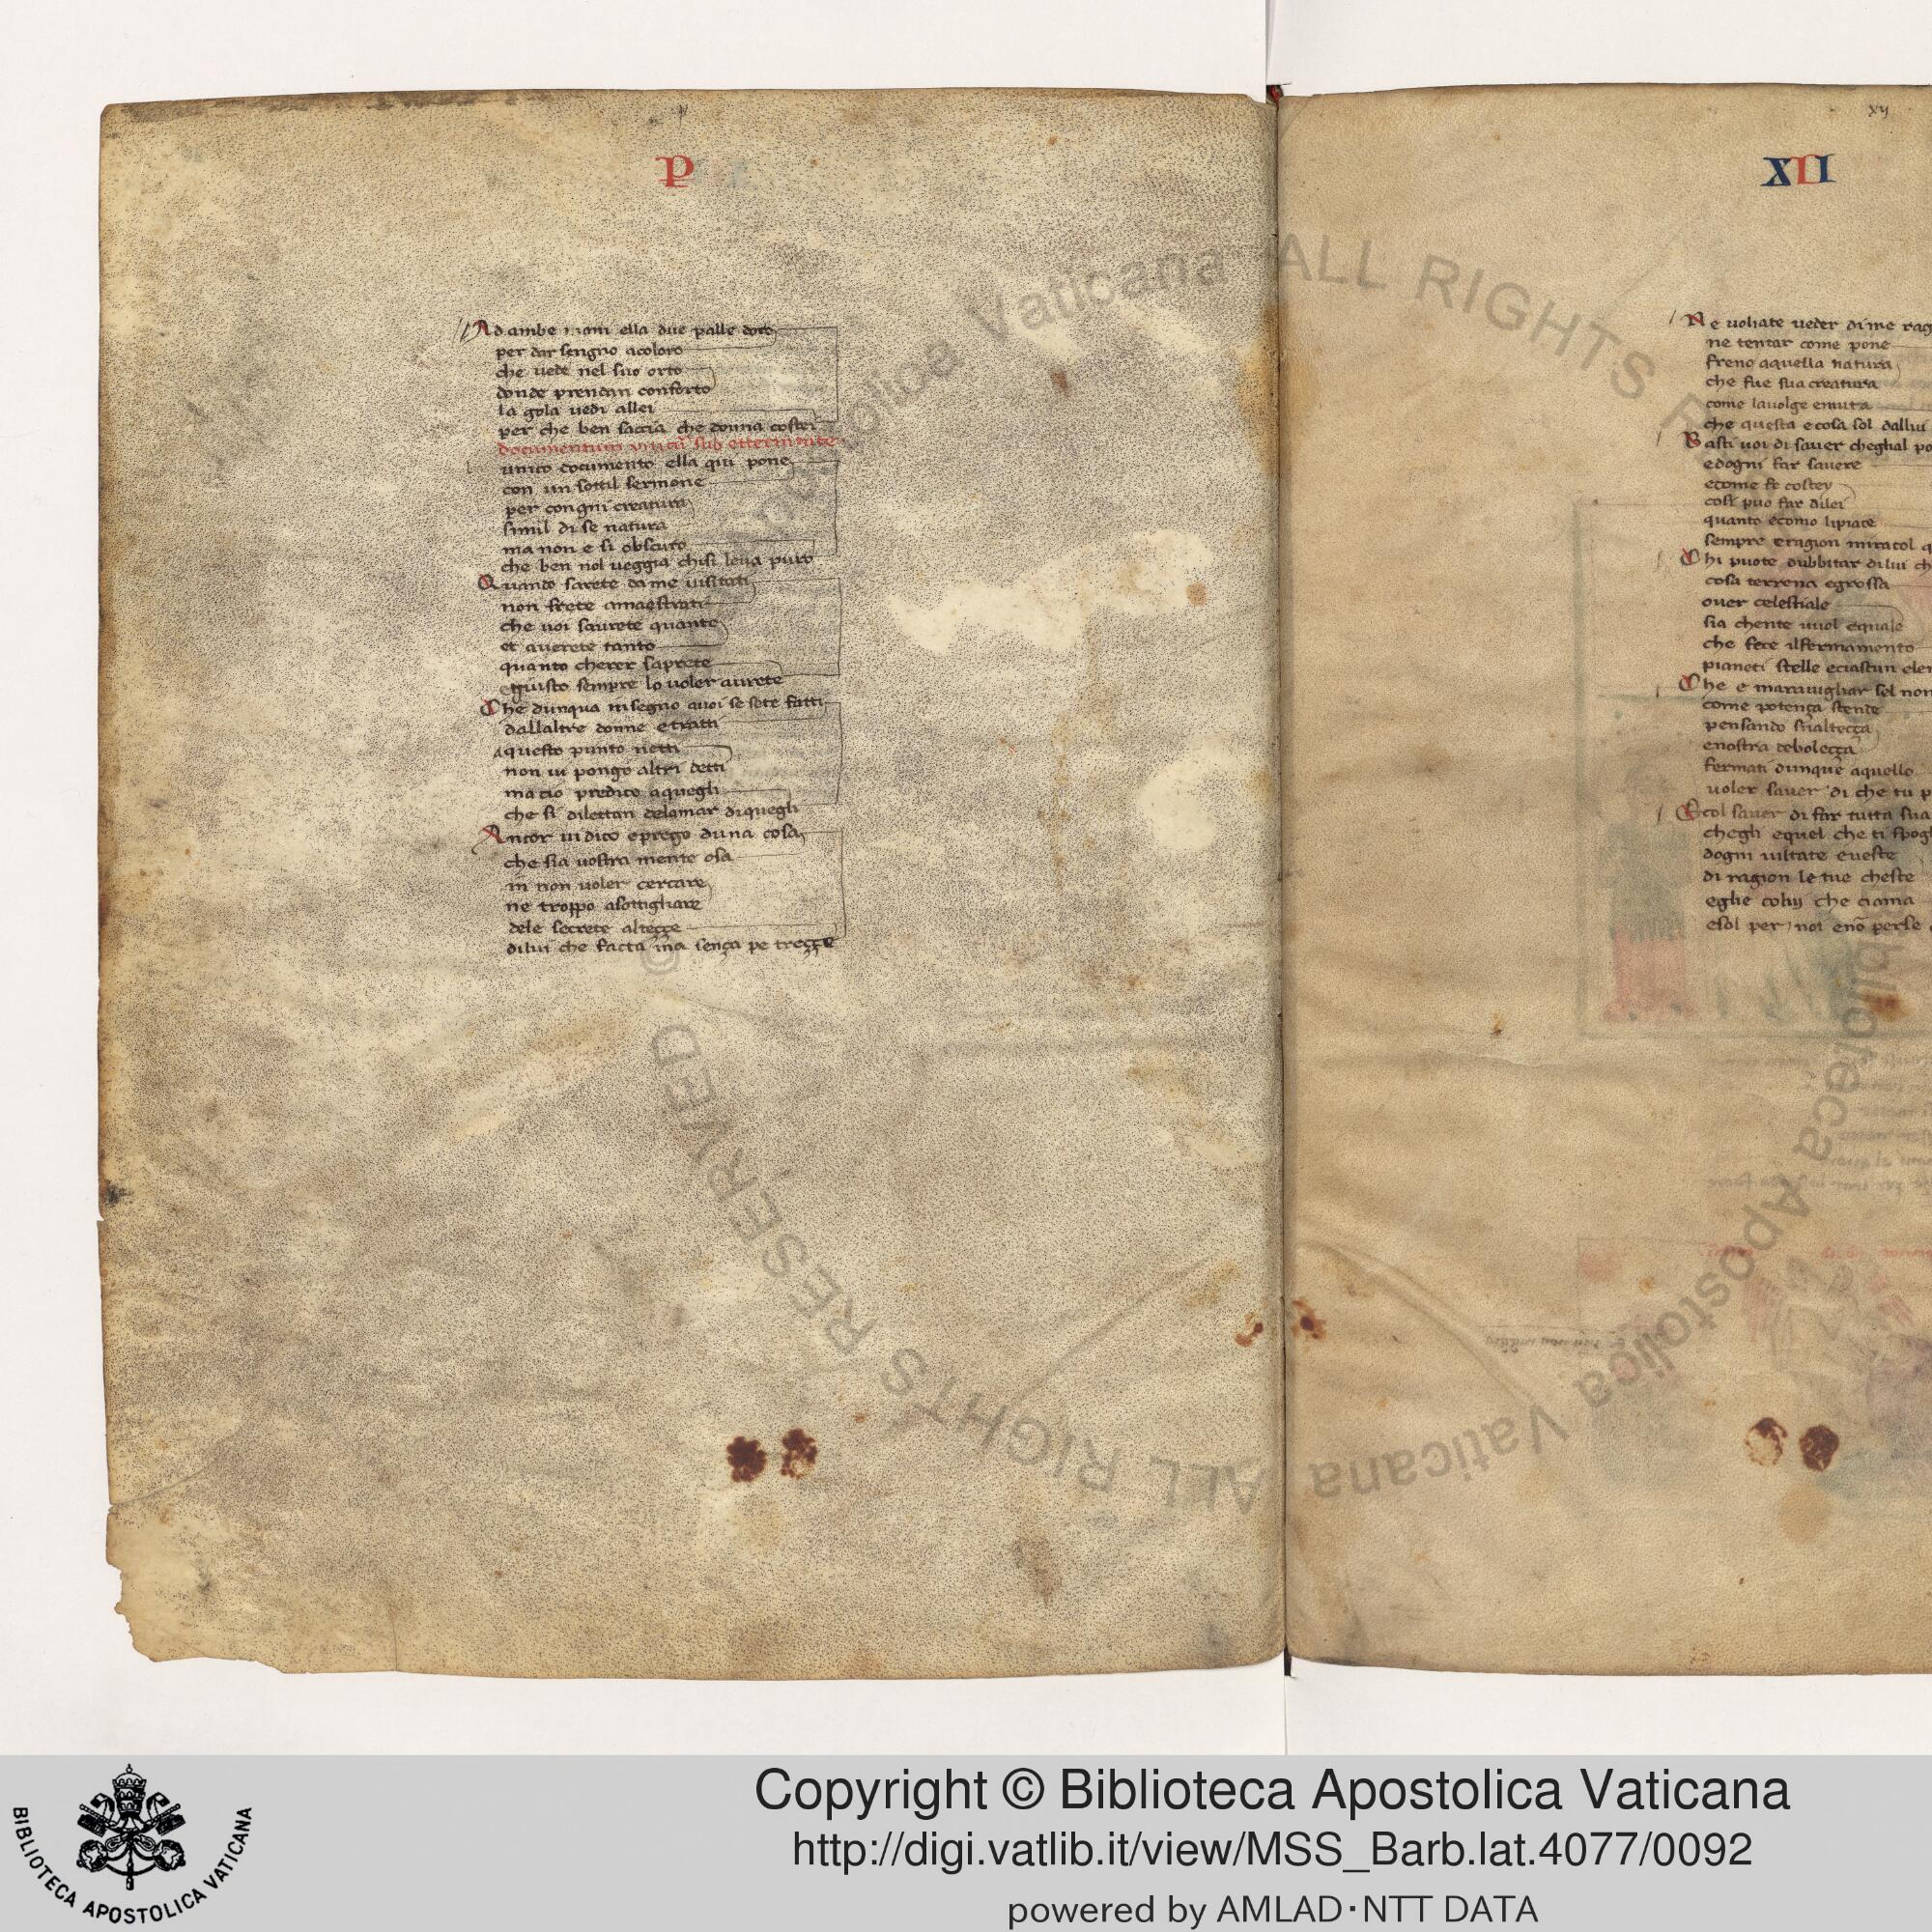 P
Ad ambe mani ella due palle doro
per dar sengno acoloro
che vede nel suo orto
donde prendan conforto
la gola vedi allei
per che ben saccia che donna costei
documentum sub etternitate
unico documento ella qui pone
con un sottil sermone
per congni creatura
simil di se natura
ma non e si obscuro
che ben nol veggia chisi leva puro
Quando sarete dame visitati
non frete amaestrati
che voi saurete quanto
et averete tanto
quanto cherer saprete
egiusto sempre lo voler aurete
Che dunqua insegno avoi se sete fatti
dallaltre donne etratti
aquesto punto netti
non vi pongo altri detti
ma cio predico aquegli
che si dilettan delamar diquegli
Ancor vi dico eprego duna cosa
che sia vostra mente osa
in non voler cercare
ne troppo asottigliare
dele secrete alteççe
dilui che facta ma sença pe treççe
xij
XII
Ne voliate veder dime rag
ne tentar come pone
freno aquella natura
che fue sua creatura
come lavolge emuta
che questa ecosa sol dallui
Basti voi di saver cheghal po
edogni far savere
ecome fe costey
cosi puo far dilei
quanto ecomo lipiace
sempre eragion miracol q
Chi puote dubbitar dilui ch
cosa terrena egrossa
over celestiale
sia chente vuol equale
che fece ilfermamento
pianeti stelle eciascun ele
Che e maravigliar sel non
come potença stende
pensando sualteçça
enostra deboleçça
fermati dunque aquello
voler saver di che tu p
Ecol saver di far tutta sua
chegli equel che ti spog
dogni viltate eveste
di ragion le tue cheste
eglie coluy che ciama
esol per noi enō perse
© Biblioteca Apostolica Vaticana ALL RIGHTS RESERVED
BIBLIOTECA APOSTOLICA VATICANA
Copyright © Biblioteca Apostolica Vaticana
http://digi.vatlib.it/view/MSS_Barb.lat.4077/0092
powered by AMLAD･NTT DATA